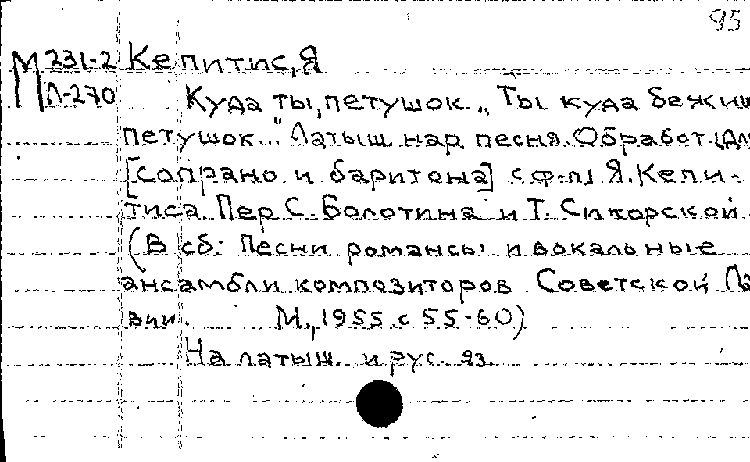 95
М 231-2 Кепитис, Я
Л-270 Куда ты, петушок. „Ты куда бежиш
петушок..." Латыш нар песня. Обработ. (дл
[сопрано и баритона] с ф-п] Я. Кепи-
тиса. Пер С. Болотина и Т. Сикорской.
(В сб: Песни романсы и вокальные
ансамбли композиторов Советской Ла
вии. М., 1955. с 55-60)
На латыш. и рус. яз.